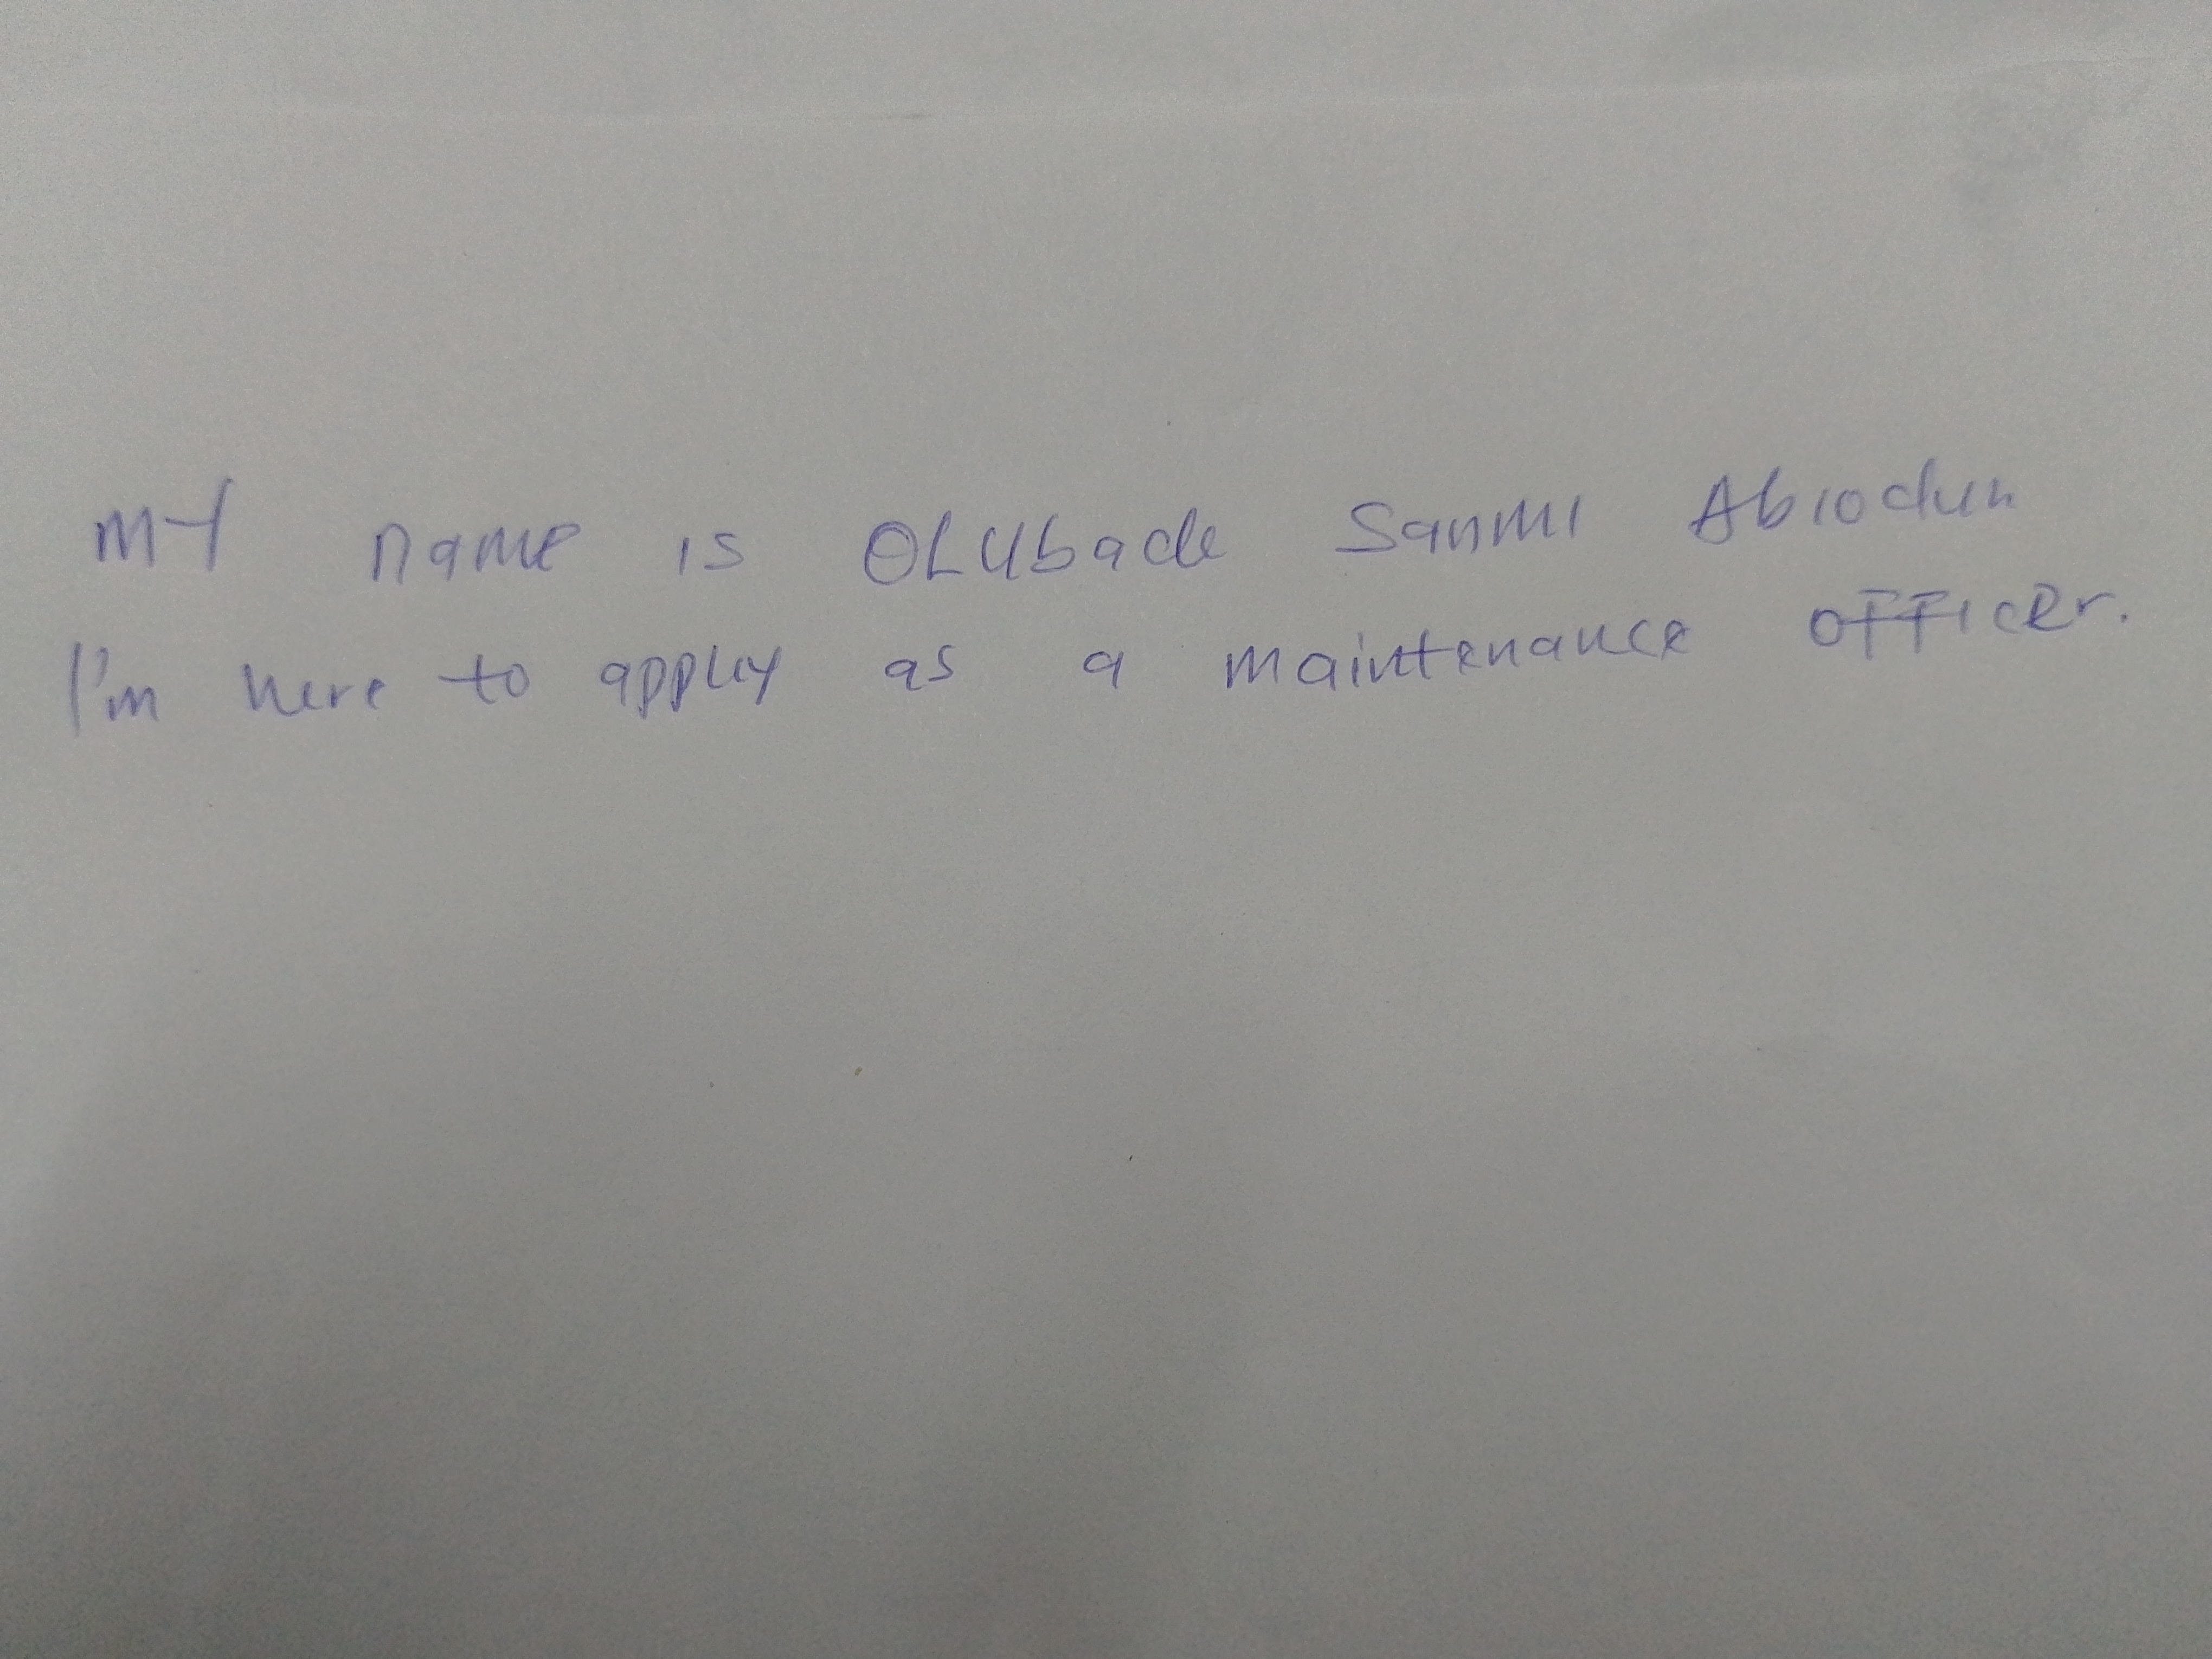 MY name is OLUbade Sanmi Abiodun
I'm here to apply as a maintenance officer.